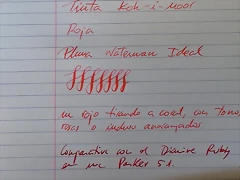 Tinta Koh-i-noor
Roja
Pluma Waterman Ideal
ffffffff
un rojo tirando a coral, con tonos
rosas o incluso anaranjados
Comparativa con el Diamine Ruby
en una Parker 51.